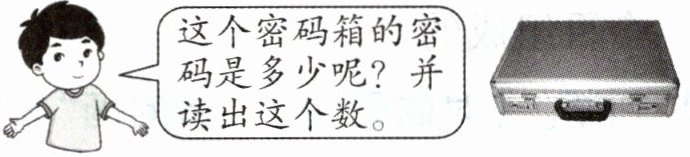 这个密码箱的密
码是多少呢？并
读出这个数。